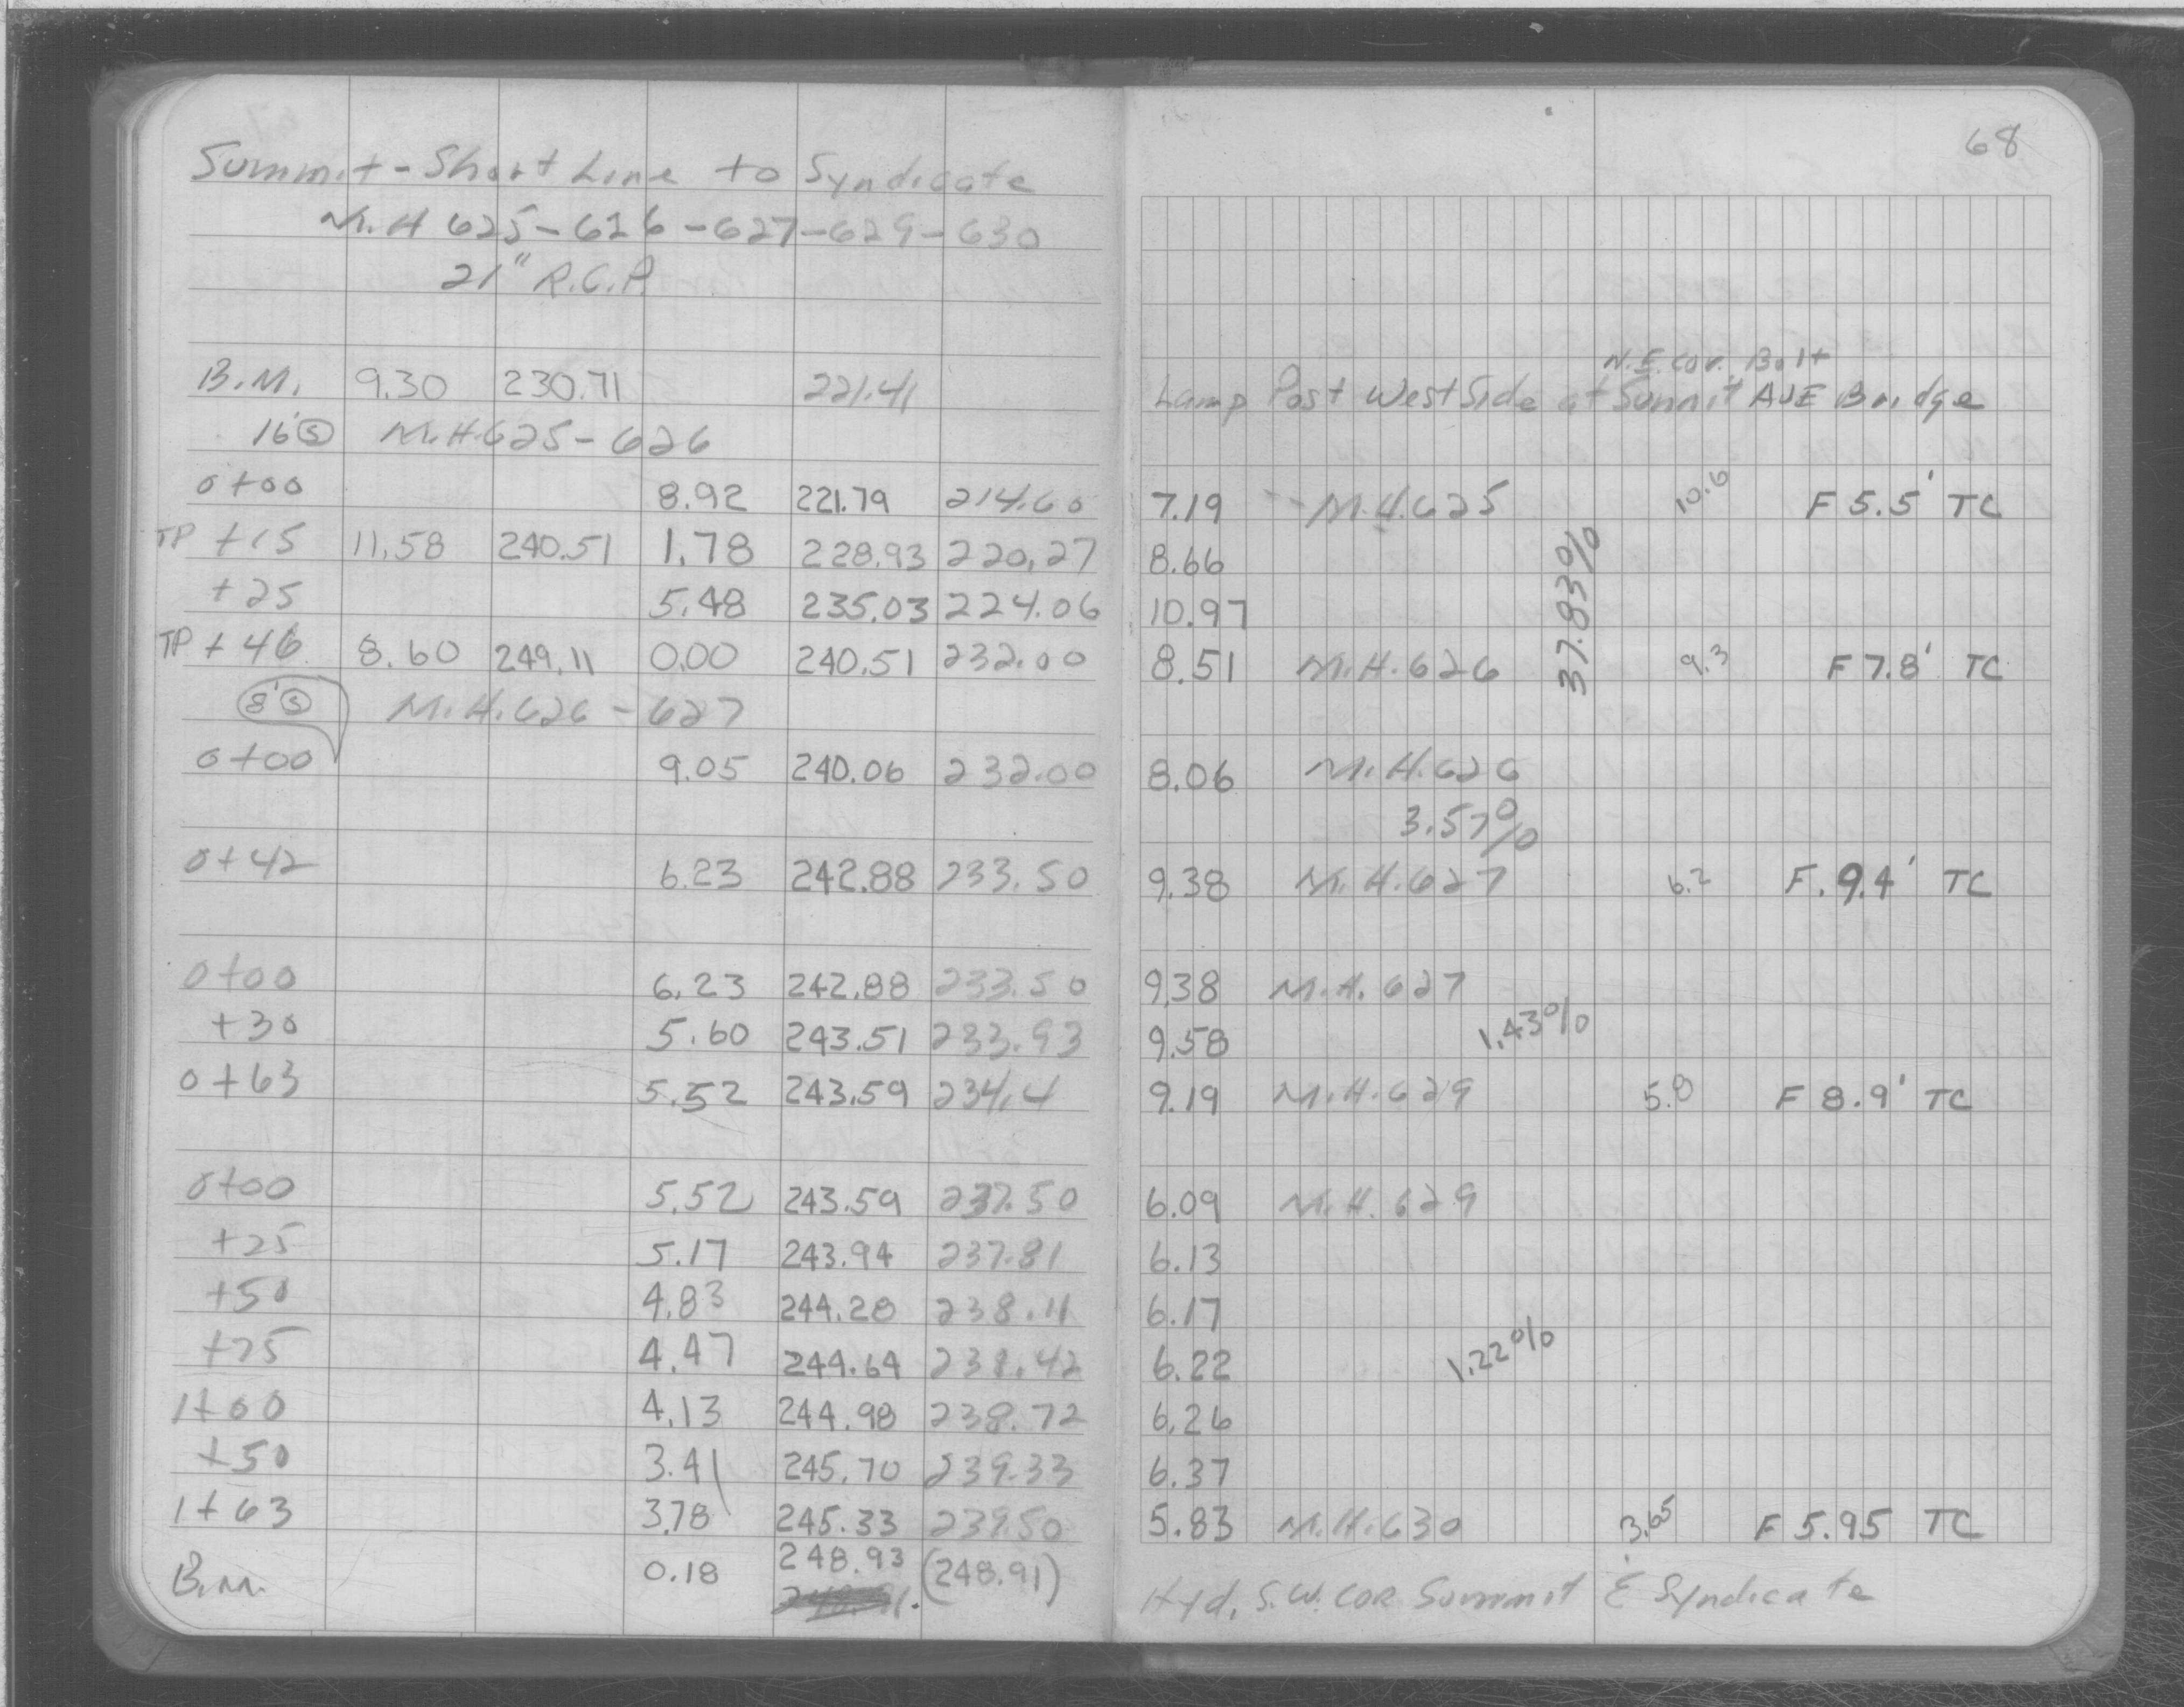 68
Summit - Short Line to Syndicate
M.H 625-626-627-629-630
21" R.C.P.
N.E. cor. Bolt
B.M. 9.30 230.71 221.41 Lamp Post West Side at Summit AVE Bridge
16' Ⓢ M.H. 625-626
0+00 8.92 221.79 214.60 7.19 M.H. 625 10.6 F 5.5' TC
TP +15 11.58 240.51 1.78 228.93 220.27 8.66
37.83%
+25 5.48 235.03 224.06 10.97
TP +46 8.60 249.11 0.00 240.51 232.00 8.51 M.H. 626 9.3 F 7.8' TC
8' Ⓢ M.H. 626-627
0+00 9.05 240.06 232.00 8.06 M.H. 626
3.57%
0+42 6.23 242.88 233.50 9.38 M.H. 627 6.2 F. 9.4' TC
0+00 6.23 242.88 233.50 9.38 M.H. 627
+30 5.60 243.51 233.93 9.58 1.43%
0+63 5.52 243.59 234.4 9.19 M.H. 629 5.8 F 8.9' TC
0+00 5.52 243.59 237.50 6.09 M.H. 629
+25 5.17 243.94 237.81 6.13
+50 4.83 244.28 238.11 6.17
+75 4.47 244.64 238.42 6.22 1.22%
1+00 4.13 244.98 238.72 6.26
+50 3.41 245.70 239.33 6.37
1+63 3.78 245.33 239.50 5.83 M.H. 630 3.65 F 5.95 TC
B.M. 0.18 248.93 (248.91) Hyd. S.W. COR Summit & Syndicate